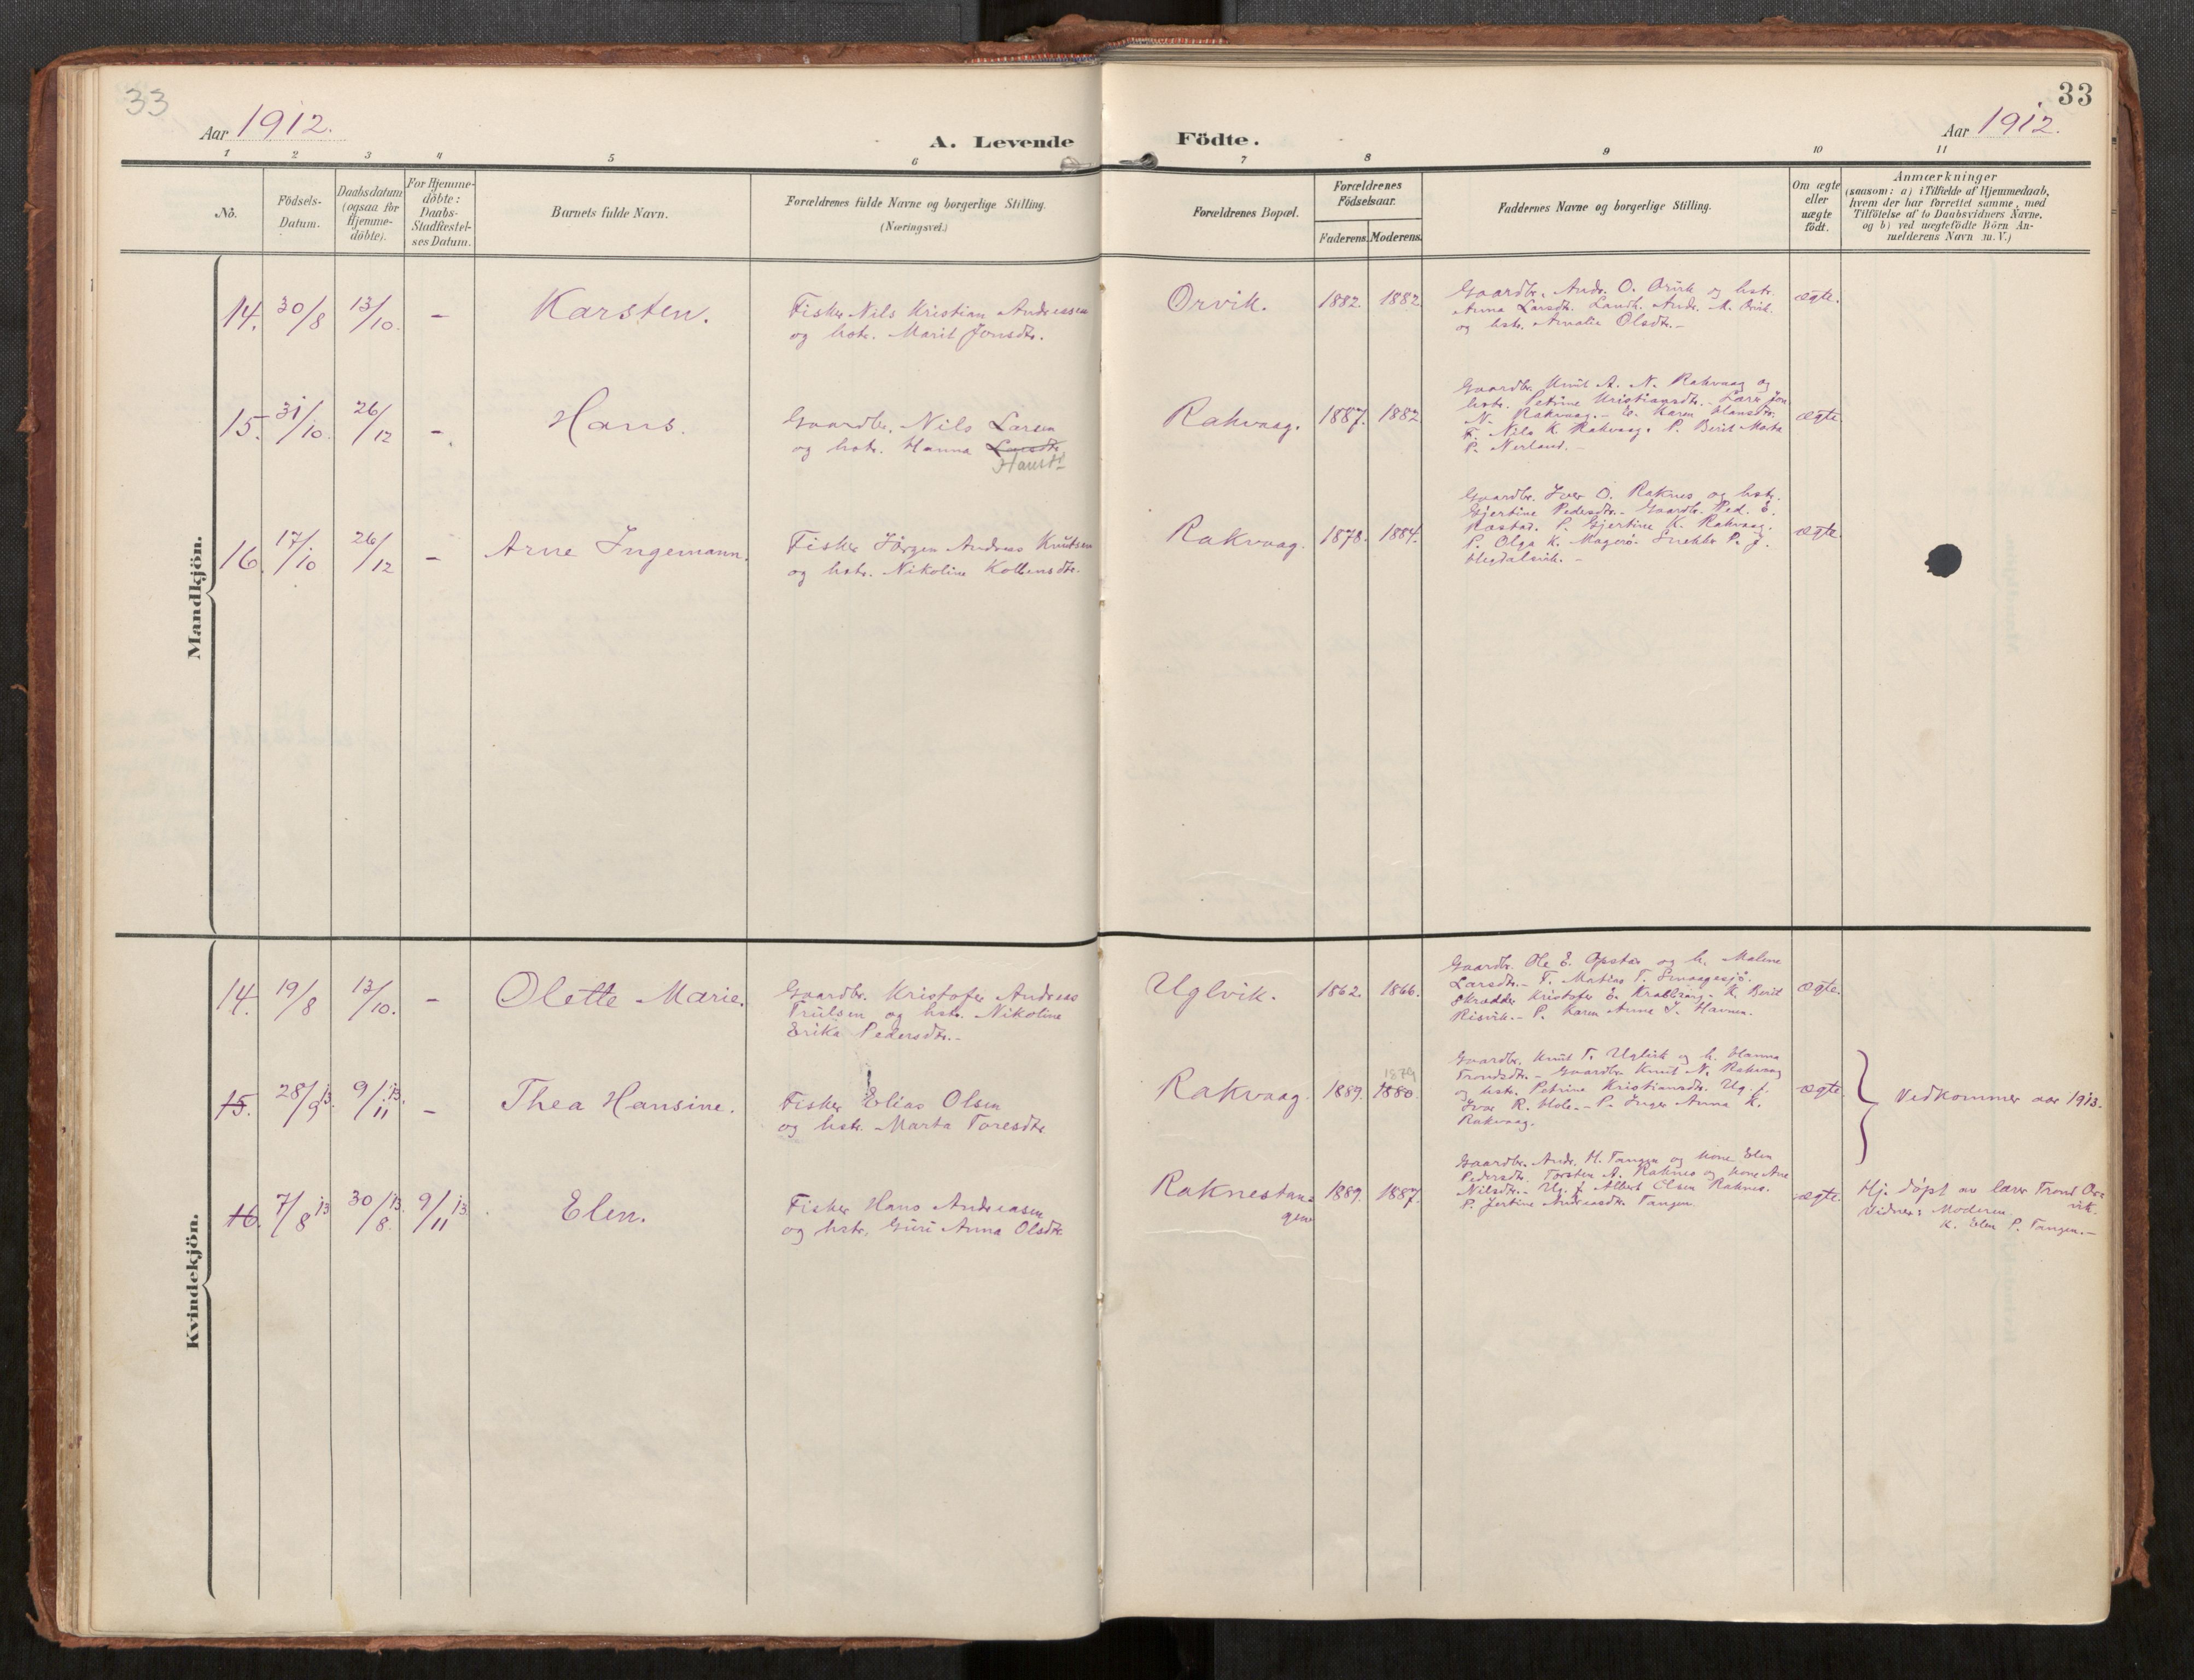 33
33
Aar 1912.
A. Levende Födte.
Aar 1912.
1 2 3 4 5 6 7 8 9 10 11
Nö.
Födsels-
Datum.
Daabsdatum
(ogsaa for
Hjemme-
döbte).
For Hjemme-
döbte:
Daabs-
Stadfæstel-
ses Datum.
Barnets fulde Navn.
Forældrenes fulde Navne og borgerlige Stilling.
(Næringsvei.)
Forældrenes Bopæl.
Forældrenes
Födselsaar.
Faderens. Moderens.
Faddernes Navne og borgerlige Stilling.
Om ægte
eller
uægte
födt.
Anmærkninger
(saasom: a) i Tilfælde af Hjemmedaab,
hvem der har forrettet samme, med
Tilföielse af to Daabsvidners Navne.
og b) ved uægtefödte Börn An-
melderens Navn m. V.)
Mandkjön.
14. 30/8 13/10. - Karsten.
Fisker Nils Kristian Andreasen
og hstr. Marit Jonsdtr.
Orvik. 1882. 1882.
Gaardbr. Andr. O. Orvik og hstr.
Anna Larsdtr. Landh. Andr. M. Orvik.
og hstr. Amalie Olsdtr. -
ægte.
15. 31/10. 26/12 - Hans.
Gaardbr. Nils Larsen
og hstr. Hanna Larsdtr
Hansdt
Rakvaag. 1887. 1882
Gaardbr. Knut A. N. Rakvaag og
hstr. Petrine Kristiansdtr. - Lars Jon
N. Rakvaag. - E. Karen Hansdtr.
F. Nils K. Rakvaag. P. Berit Marta
P. Nerland. -
ægte
16. 17/10 26/12 - Arne Ingemann.
Fisker Jörgen Andreas Knutsen
og hstr. Nikoline Kolbensdtr.
Rakvaag. 1878. 1884.
Gaardbr. Iver O. Raknes og hstr.
Gjertine Pedersdtr. - Gaardbr. Ped. O.
Rostad. P. Gjertine K. Rakvaag.
P. Olga K. Magerö. Snekker P. J.
Hegdalsvik. -
ægte.
Kvindekjön.
14. 19/8 13/10. - Olette Marie.
Gaardbr. Kristofer Andreas
Trulsen og hstr. Nikoline
Erika Pedersdtr. -
Uglvik. 1862. 1866.
Gaardbr. Ole E. Opstad og h. Malene
Larsdtr. - F. Matias T. Smaagesjö.
Skrædder Kristofer O. Krabbvaag. - K. Berit
Risvik. - P. Karen Anne J. Havnen.
ægte.
15. 28/9 13. 9/11 13. - Thea Hansine.
Fisker Elias Olsen
og hstr. Marta Toresdtr.
Rakvaag. 1889. 1880. 1879
Gaardbr. Knut T. Uglvik og h. Hanna
Trondsdtr. - Gaardbr. Knut N. Rakvaag
og hstr. Petrine Kristiansdtr. Ug. f.
Ivar R. Hole. - P. Inger Anna K.
Rakvaag.
ægte.
Vedkommer aar 1913.
16. 7/8 13 30/8. 13. 9/11 13 Elen.
Fisker Hans Andreasen
og hstr. Guri Anna Olsdtr.
Raknestan-
gen 1889. 1887.
Gaardbr. Andr. H. Tangen og kone Elen
Pedersdtr. Torsten A. Raknes og kone Ane
Nilsdtr. - Ug. f. Albert Olsen Raknes.
P. Jertine Andreasdtr. Tangen.
ægte.
Hj. döpt av lærer Trond Or-
vik.
Vidner: Moderen
K. Elen P. Tangen. -